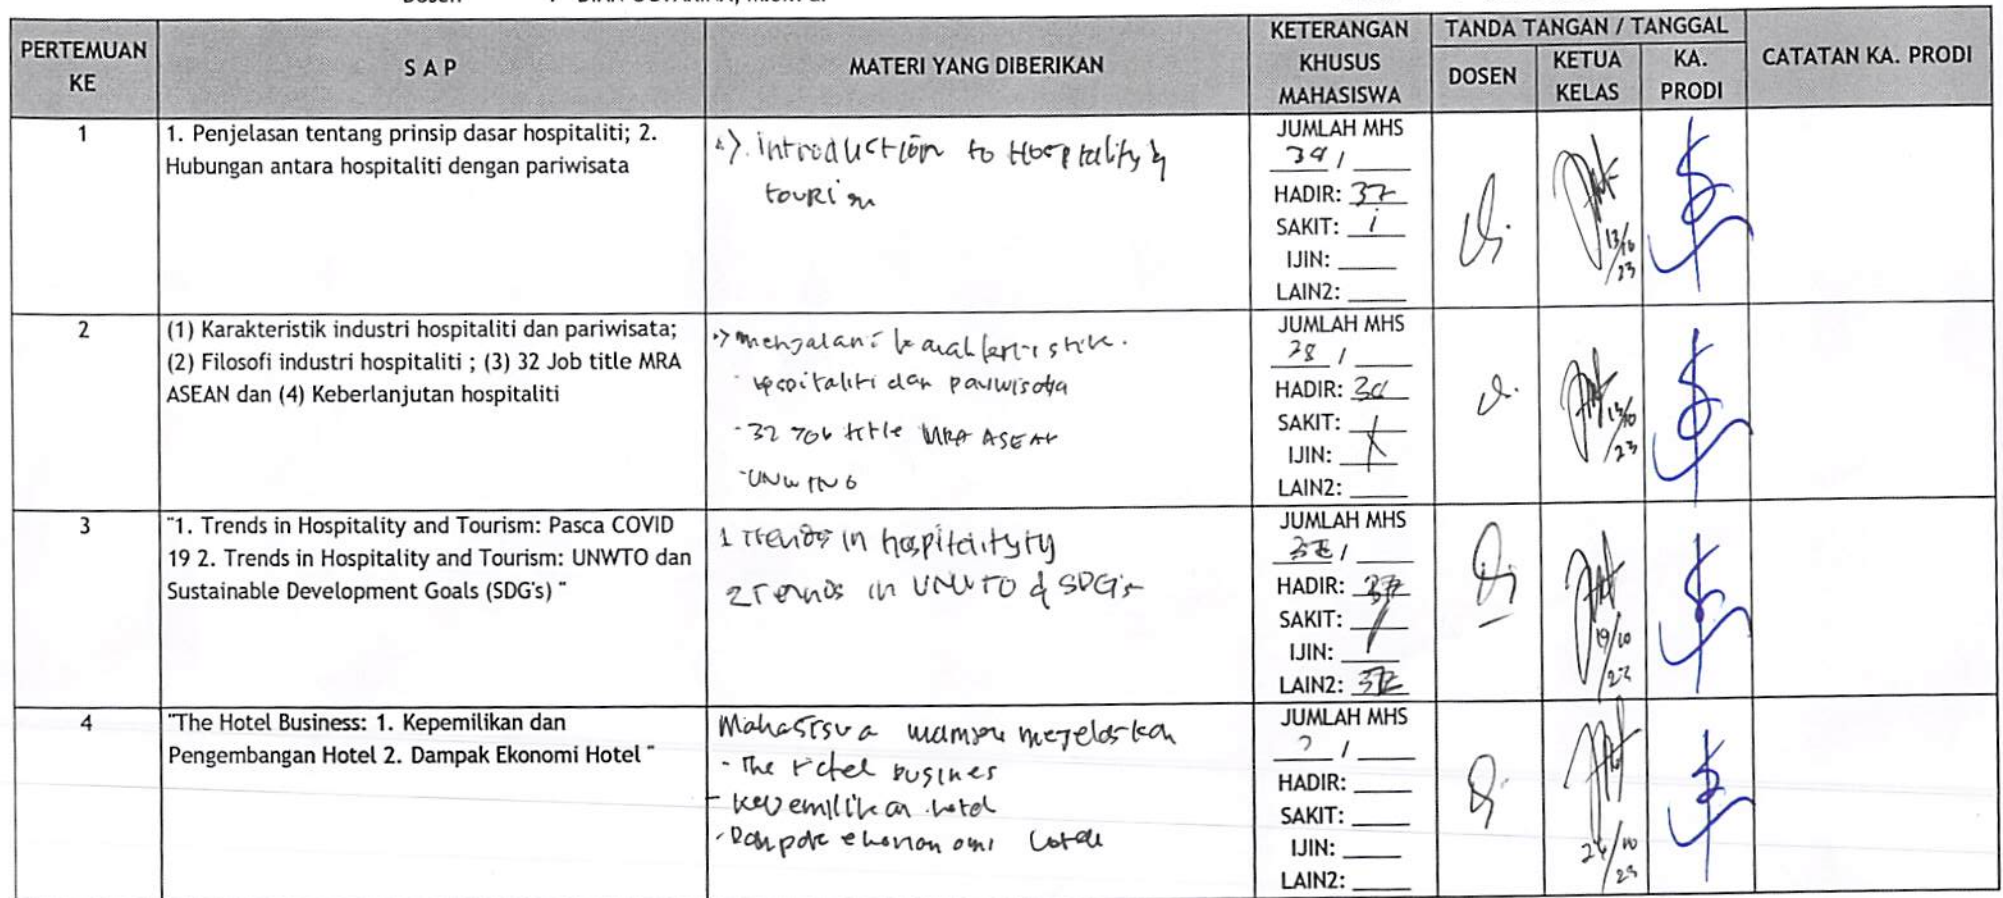 PERTEMUAN KE
S A P
MATERI YANG DIBERIKAN
KETERANGAN KHUSUS MAHASISWA
TANDA TANGAN / TANGGAL
DOSEN
KETUA KELAS
KA. PRODI
CATATAN KA. PRODI
1
1. Penjelasan tentang prinsip dasar hospitaliti; 2.
Hubungan antara hospitaliti dengan pariwisata
introduction to Hospitality &
tourism
JUMLAH MHS
/
HADIR: 37
SAKIT: 1
IJIN:
LAIN2:
13/10
23
2
(1) Karakteristik industri hospitaliti dan pariwisata;
(2) Filosofi industri hospitaliti ; (3) 32 Job title MRA
ASEAN dan (4) Keberlanjutan hospitaliti
hospitaliti dan pariwisata
- 32 Job title MRA ASEAN
JUMLAH MHS
38 /
HADIR:
SAKIT:
IJIN:
LAIN2:
13/10
23
3
"1. Trends in Hospitality and Tourism: Pasca COVID
19 2. Trends in Hospitality and Tourism: UNWTO dan
Sustainable Development Goals (SDG's) "
1 Trends in hospitalityty
2 Trends in UNWTO & SDG's
JUMLAH MHS
/
HADIR: 37
SAKIT:
IJIN:
LAIN2:
19/10
23
4
"The Hotel Business: 1. Kepemilikan dan
Pengembangan Hotel 2. Dampak Ekonomi Hotel "
Mahasiswa mampu mejelaskan
- The Hotel busines
- kepemilikan hotel
JUMLAH MHS
/
HADIR:
SAKIT:
IJIN:
LAIN2: